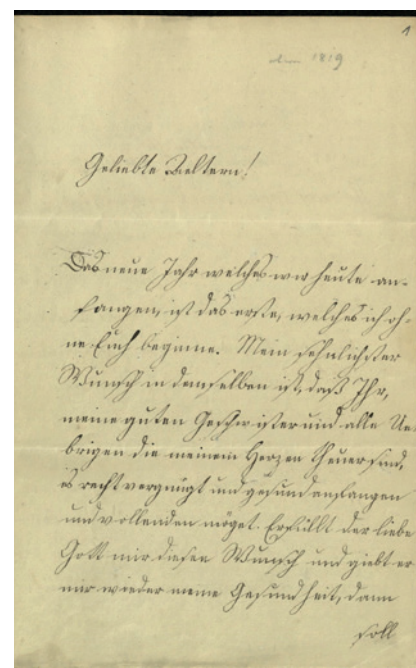 1
1819
Geliebte Aeltern!
Das neue Jahr welches wir heute an-
fangen, ist das erste, welches ich oh-
ne Euch beginne. Mein sehnlichster
Wunsch in demselben ist, daß Ihr,
meine guten Geschwister und alle Ue-
brigen die meinem Herzen theuer sind,
es recht vergnügt und gesund anfangen
und vollenden möget. Erfüllt der liebe
Gott mir diesen Wunsch und giebt er
mir wieder meine Gesundheit, dann
soll